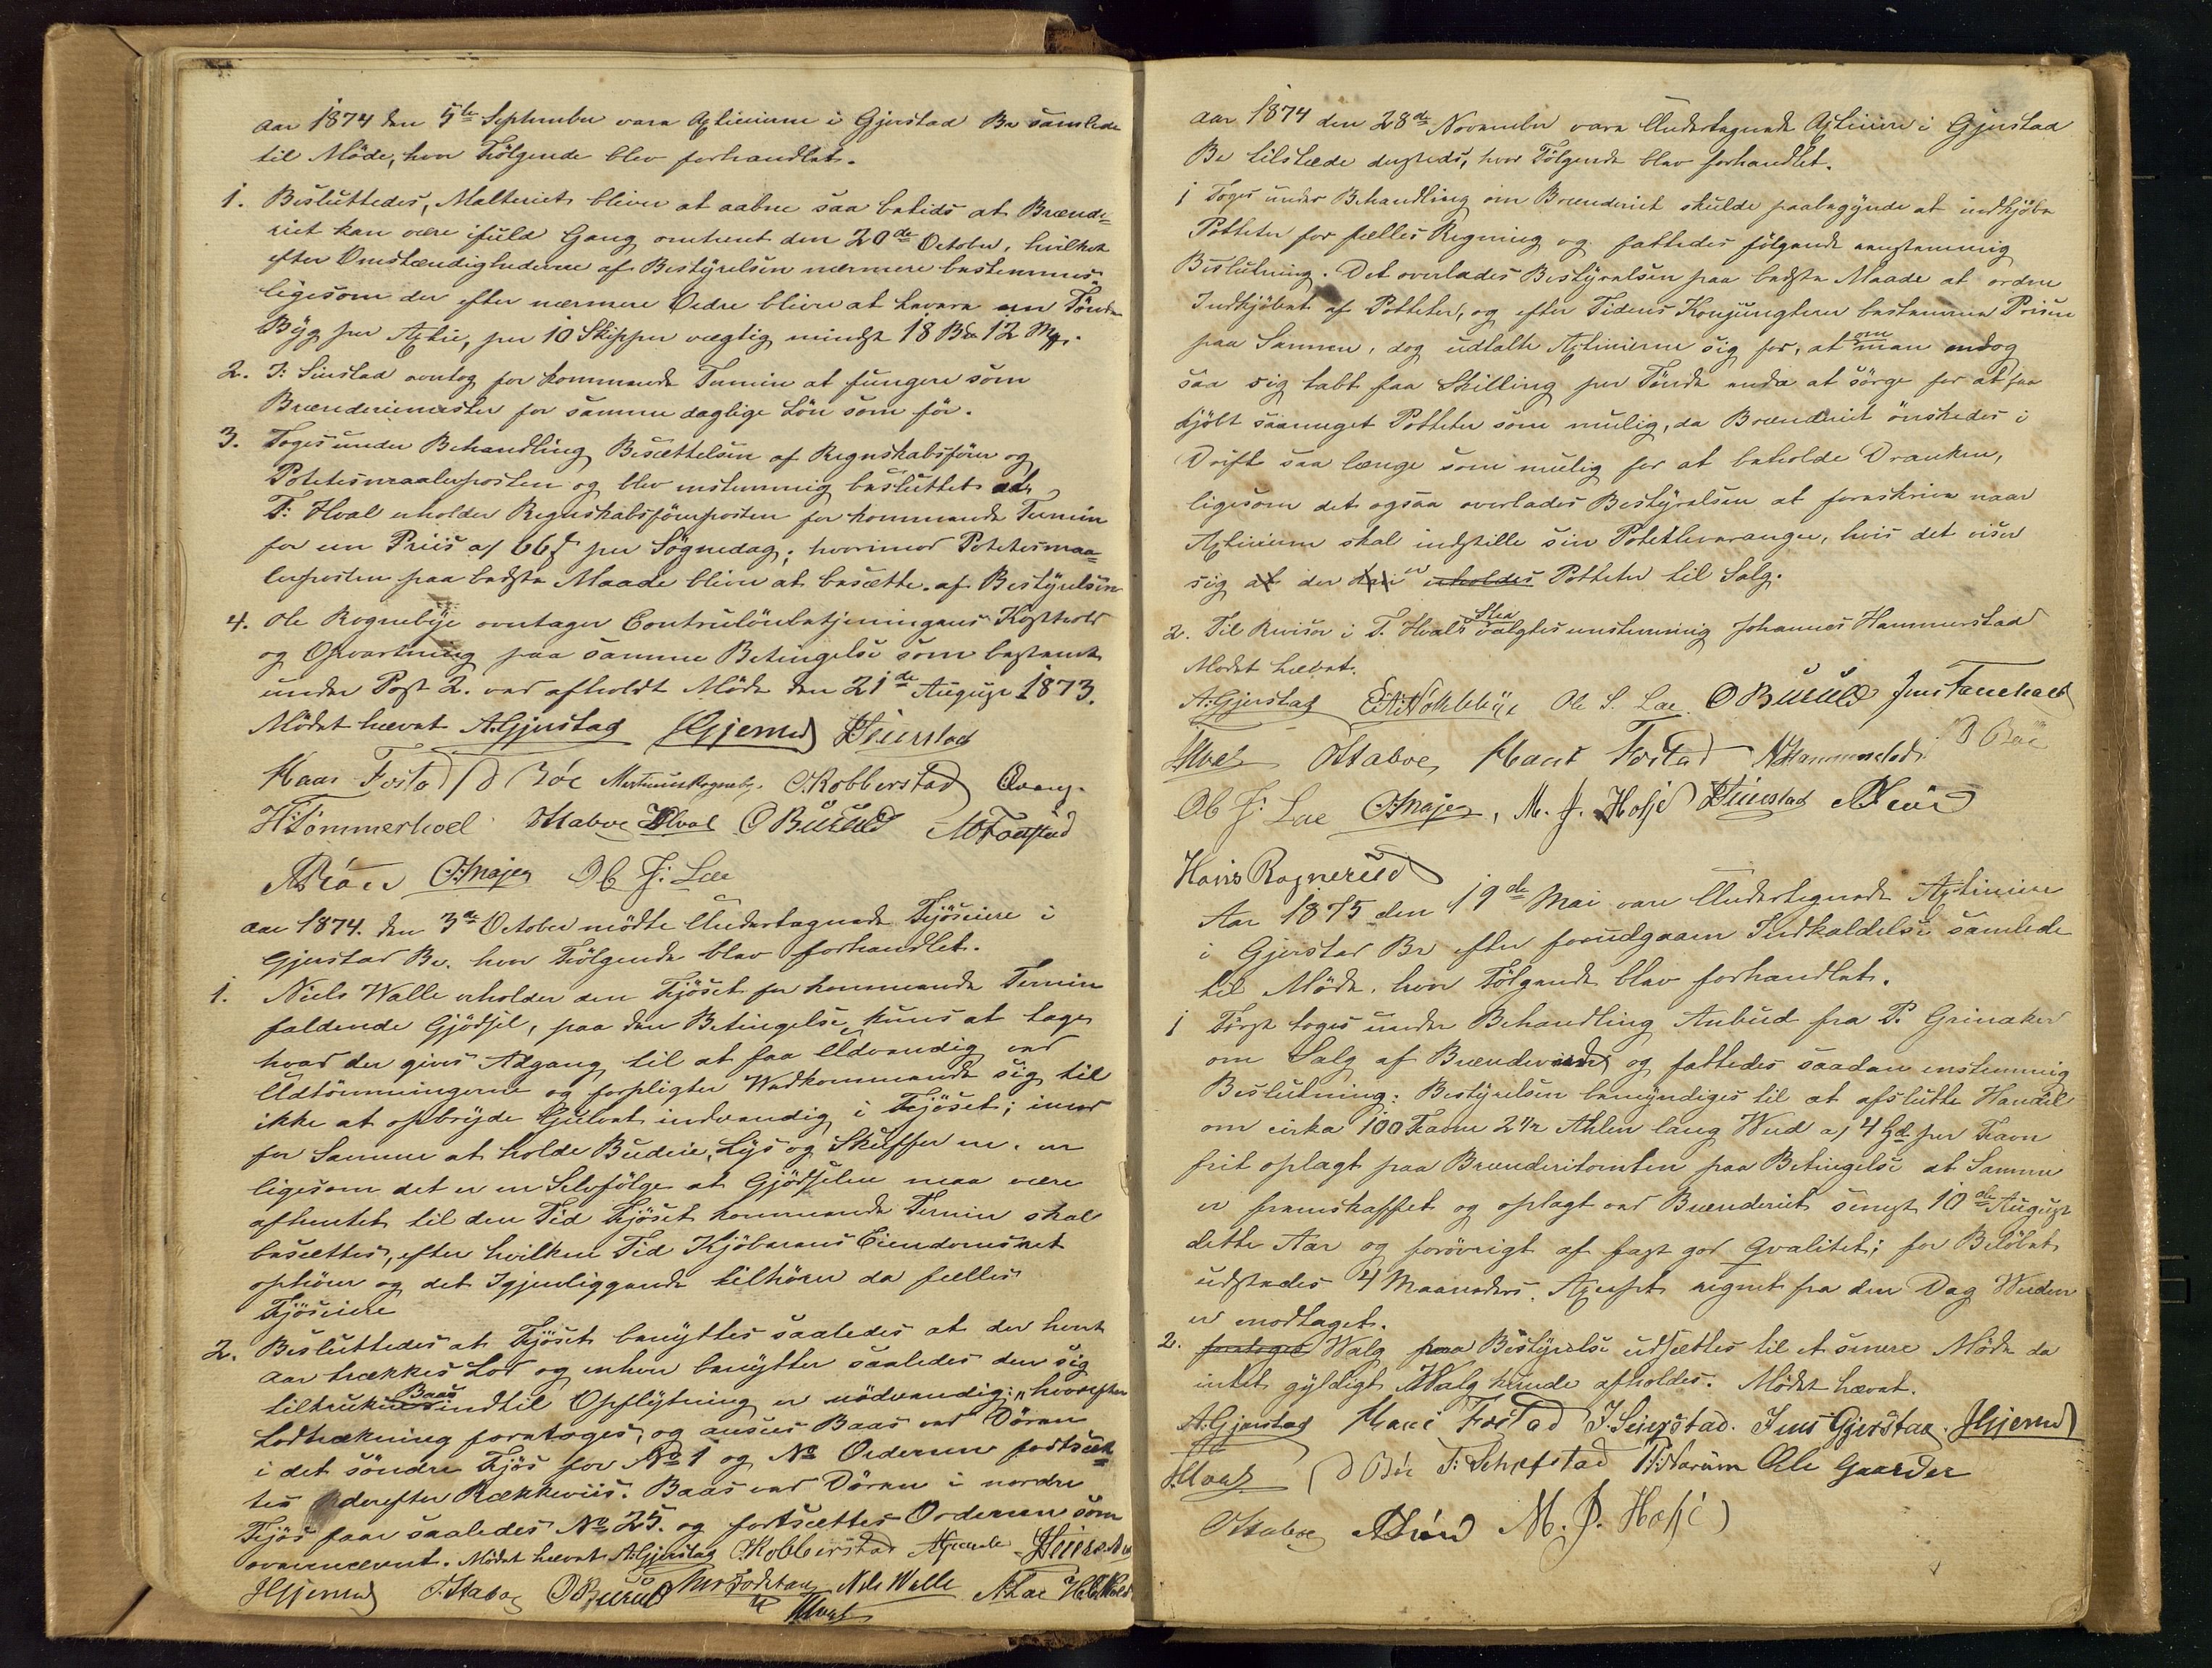 Aar 1874 den 5te September vare Aktieierne i Gjerstad Br samlede
til Möde, hvor Fölgende blev forhandlet.
1. Besluttedes, Malteriet bliver at aabne saa betids at Brænde-
riet kan være ifuld Gang omtrent den 20de October, hvilket
efter Omstændighederne af Bestyrelsen nærmere bestemmes
ligesom der efter nærmere Ordre bliver at levere en Tönde
Byg per Aktie, per 10 Skipper vægtig mindst 18 B℔ 12 Mrk.
2. J: Seierstad overtog for kommende Termin at fungere som
Brænderimester for samme daglige Lön som för.
3. Toges under Behandling Besættelsen af Regnskabsförer og
Potetesmaalerposten og blev enstemmig besluttet at
T: Hval erholder Regnskabsförerposten for kommende Termin
for en Priis a/ 66 ß per Sögnedag; hvorimod Potetesmaa-
lerposten paa bedste Maade bliver at besætte af Bestyrelsen
4. Ole Rognebye overtager Contrulörbetjeningens Kosthold
og Opvartning paa samme Betingelse som bestemt
under Post 2. ved afholdt Möde den 21de August 1873.
Mödet hævet A. Gjerstad HGjernes JSeierstad
Hans Fosta D Böe Martinus Rognebye C. Kobberstad
H Tömmerhoel OStaboe Hval O Buruld M Fodstad
O. Majer Ole J: Lae
Aar 1874. den 3de October mödte Undertegnede Fjöseiere i
Gjerstad Br. hvor Fölgende blev forhandlet.
1. Niels Walle erholder den Fjöset for kommende Termin
faldende Gjödsel, paa den Betingelse, kuns at tage
hvad der gives Adgang til at faa Udvendig ved
Udtömningerne og forpligter Vedkommende sig til
ikke at opbryde Gulvet indvendig i Fjöset; imod
for Samme at holde Budeie, Lys og Skuffer m. m
ligesom det er en Selvfölge at Gjödselen maa være
afhentet til den Tid Fjöset kommende Termin skal
besættes, efter hvilken Tid Kjöberens Eiendomsret
ophörer og det Igjenliggende tilhörer da fælles
Fjöseiere
2. Besluttedes at Fjöset benyttes saaledes at der hvert
Aar trækkes Lod og enhver benytter saaledes den sig
tiltrukne Baas indtil Opflytning er nödvendig; hvorefter
Lodtrækning foretoges, og ansees Baas ved Dören
i det söndre Fjös for No 1 og No Ordenen fortsæt-
tes derefter Rækkeviis. Baas ved Dören i nordre
Fjös faar saaledes No 25. og fortsættes Ordenen som
ovennævnt. Mödet hævet A. Gjerstad C. Kobberstad JSeierstad
HGjernes OStaboe O Buruld Fodstad Nils Walle A. Lae
Hval
Aar 1874 den 28de November vare Undertegnede Aktieiere i Gjerstad
Br tilstæde dersteds, hvor Fölgende blev forhandlet.
1 Toges under Behandling om Brænderiet skulde paabegynde at indkjöbe
Potteter for fælles Regning og fattedes fölgende enstemmig
Beslutning. Det overlades Bestyrelsen paa bedste Maade at ordne
Indkjöbet af Potteter, og efter Tidens Konjungturer bestemme Prisen
paa Samme, dog udtalte Aktieierne sig for, at om man endog
saa sig tabt faa Skilling per Tönde enda at sörge for at faa
kjöbt saameget Potteter som mulig, da Brænderiet önskedes i
Drift saa længe som mulig for at beholde Dranken,
ligesom det ogsaa overlades Bestyrelsen at foreskrive naar
Aktieierne skal indstille sin Potetleverange, hvis det viser
sig at der er erholdes Potteter til Salg.
2. Til Revisor i T. Hvals Sted valgtes enstemmig Johannes Hammerstad
Mödet hævet.
A. Gjerstad E.A. Nökleby Ole S. Lae O Buruld Jens Fauchald
Hval OStaboe Hans Fostad N Hammerstad D Böe
Ole J: Lae O. Majer, M. J. Hofsé JSeierstad
Hans Rognerud
Aar 1875 den 19de Mai vare Undertegnede Aktieiere
i Gjerstad Br efter forudgaaen Indkaldelse samlede
til Möde, hvor Fölgende blev forhandlet.
1 Först toges under Behandling Anbud fra P. Grinaker
om Salg af Brændeved og fattedes saadan enstemmig
Beslutning: Bestyrelsen bemyndiges til at afslutte Handel
om cirka 100 Favne 2 1/2 Ahlen lang Wed a/ 4 Spd. per Favn
frit oplagt paa Brænderitomten paa Betingelse at Samme
er fremskaffet og oplagt ved Brænderiet senest 10de August
dette Aar og forövrigt af fast god Qvalitet; for Belöbet
udstedes 4 Maaneders Axept regnet fra den Dag Weden
er modtaget.
2. foretoges Walg paa Bestyrelse udsættes til et senere Möde da
intet gyldigt Walg kunde afholdes. Mödet hævet.
A. Gjerstad Hans Fostad J. Seierstad. Jens Gjerstad. HGjernes
Hval D Böe T: Schefstad Ole Gaarder
OStaboe M. J. Hofsé